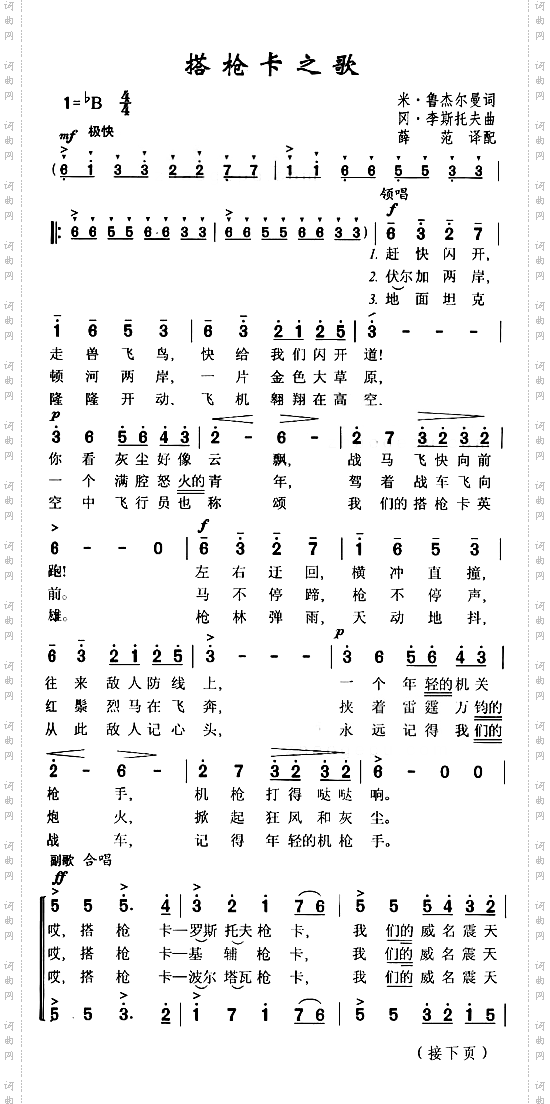 搭枪卡之歌
1=♭B 4/4
米·鲁杰尔曼词
冈·李斯托夫曲
薛 范 译配
mf 极快
(6 1 3 3 2 2 7 7 | 1 1 6 6 5 5 3 3 |
领唱
f
‖: 6 6 5 5 6 6 3 3 | 6 6 5 5 6 6 3 3) | 6 3 2 7 |
1. 赶快闪开,
2. 伏尔加两岸,
3. 地面坦克
1 6 5 3 | 6 3 2 1 2 5 | 3 - - - |
走兽飞鸟, 快给我们闪开道!
顿河两岸, 一片金色大草原,
隆隆开动、飞机翱翔在高空.
p
3 6 5 6 4 3 | 2 - 6 - | 2 7 3 2 3 2 |
你看灰尘好像云飘, 战马飞快向前
一个满腔怒火的青年, 驾着战车飞向
空中飞行员也称颂 我们的搭枪卡英
f
6 - - 0 | 6 3 2 7 | 1 6 5 3 |
跑! 左右迂回, 横冲直撞,
前。 马不停蹄, 枪不停声,
雄。 枪林弹雨, 天动地抖,
p
6 3 2 1 2 5 | 3 - - - | 3 6 5 6 4 3 |
往来敌人防线上, 一个年轻的机关
红鬃烈马在飞奔, 挟着雷霆万钧的
从此敌人记心头, 永远记得我们的
2 - 6 - | 2 7 3 2 3 2 | 6 - 0 0 |
枪手, 机枪打得哒哒响。
炮火, 掀起狂风和灰尘。
战车, 记得年轻的机枪手。
副歌 合唱
ff
5 5 5. 4 | 3 2 1 7 6 | 5 5 5 4 3 2 |
哎, 搭枪卡—罗斯托夫枪卡, 我们的威名震天
哎, 搭枪卡—基辅枪卡, 我们的威名震天
哎, 搭枪卡—波尔塔瓦枪卡, 我们的威名震天
5 5 3. 2 | 1 7 1 7 6 | 5 5 3 2 1 5 |
(接下页)
词曲网